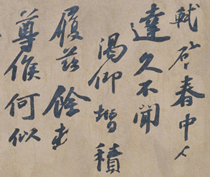 軾啓春中
達久不聞
渴仰增積
履茲餘
尊候何似